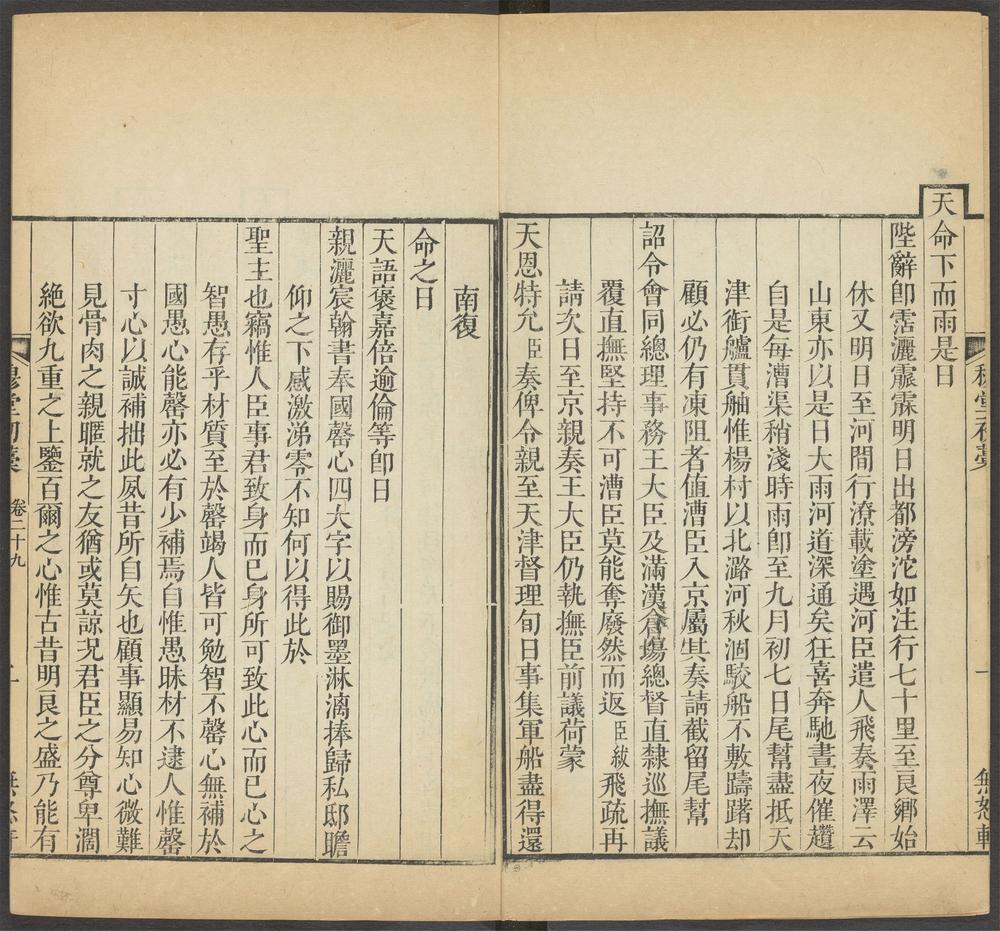 天命下而雨是日
陛辭卽霑灑霢霂明日出都滂沱如注行七十里至良鄉始
休又明日至河間行潦載塗遇河臣遣人飛奏雨澤云
山東亦以是日大雨河道深通矣狂喜奔馳晝夜催趲
自是每漕渠稍淺時雨卽至九月初七日尾幫盡抵天
津銜艫貫舳惟楊村以北潞河秋涸駮船不敷躊躇却
顧必仍有凍阻者値漕臣入京屬其奏請截留尾幫
詔令會同總理事務王大臣及滿漢倉塲總督直隸巡撫議
覆直撫堅持不可漕臣莫能奪廢然而返臣紱飛疏再
請次日至京親奏王大臣仍執撫臣前議荷蒙
天恩特允臣奏俾令親至天津督理旬日事集軍船盡得還
南復
命之日
天語褒嘉倍逾倫等卽日
親灑宸翰書奉國罄心四大字以賜御墨淋漓捧歸私邸瞻
仰之下感激涕零不知何以得此於
聖主也竊惟人臣事君致身而已身所可致此心而已心之
智愚存乎材質至於罄竭人皆可勉智不罄心無補於
國愚心能罄亦必有少補焉自惟愚昧材不逮人惟罄
寸心以誠補拙此夙昔所自矢也顧事顯易知心微難
見骨肉之親暱就之友猶或莫諒况君臣之分尊卑濶
絶欲九重之上鑒百爾之心惟古昔明良之盛乃能有
穆堂初藁 卷二十九 一 無怒軒